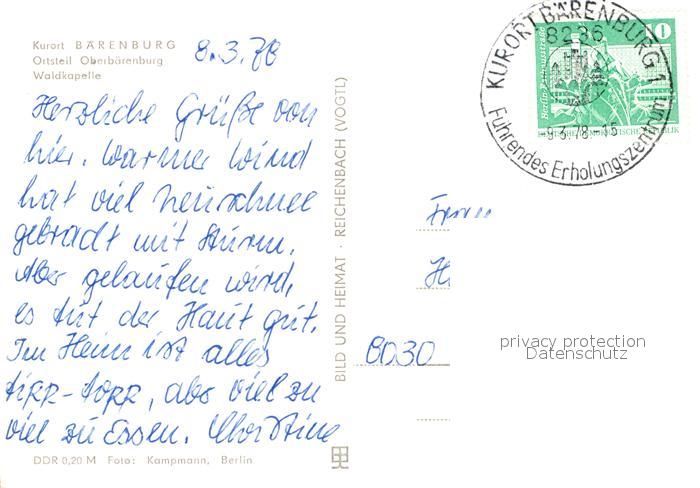 Kurort BÄRENBURG
Ortsteil Oberbärenburg
Waldkapelle
8.3.78
Herzliche Grüße von
hier. Warmer Wind
hat viel Neuschnee
gebracht mit Sturm.
Aber gelaufen wird,
es tut der Haut gut.
Im Heim ist alles
tipp-topp, aber viel zu
viel zu Essen. Christine
DDR 0,20 M Foto: Kampmann, Berlin
BILD UND HEIMAT · REICHENBACH (VOGTL)
KURORT BÄRENBURG 1
8236
-9.3.78-15
Führendes Erholungszentrum
Berlin, Rathausstraße
10
DEUTSCHE DEMOKRATISCHE REPUBLIK
H
8030
privacy protection
Datenschutz